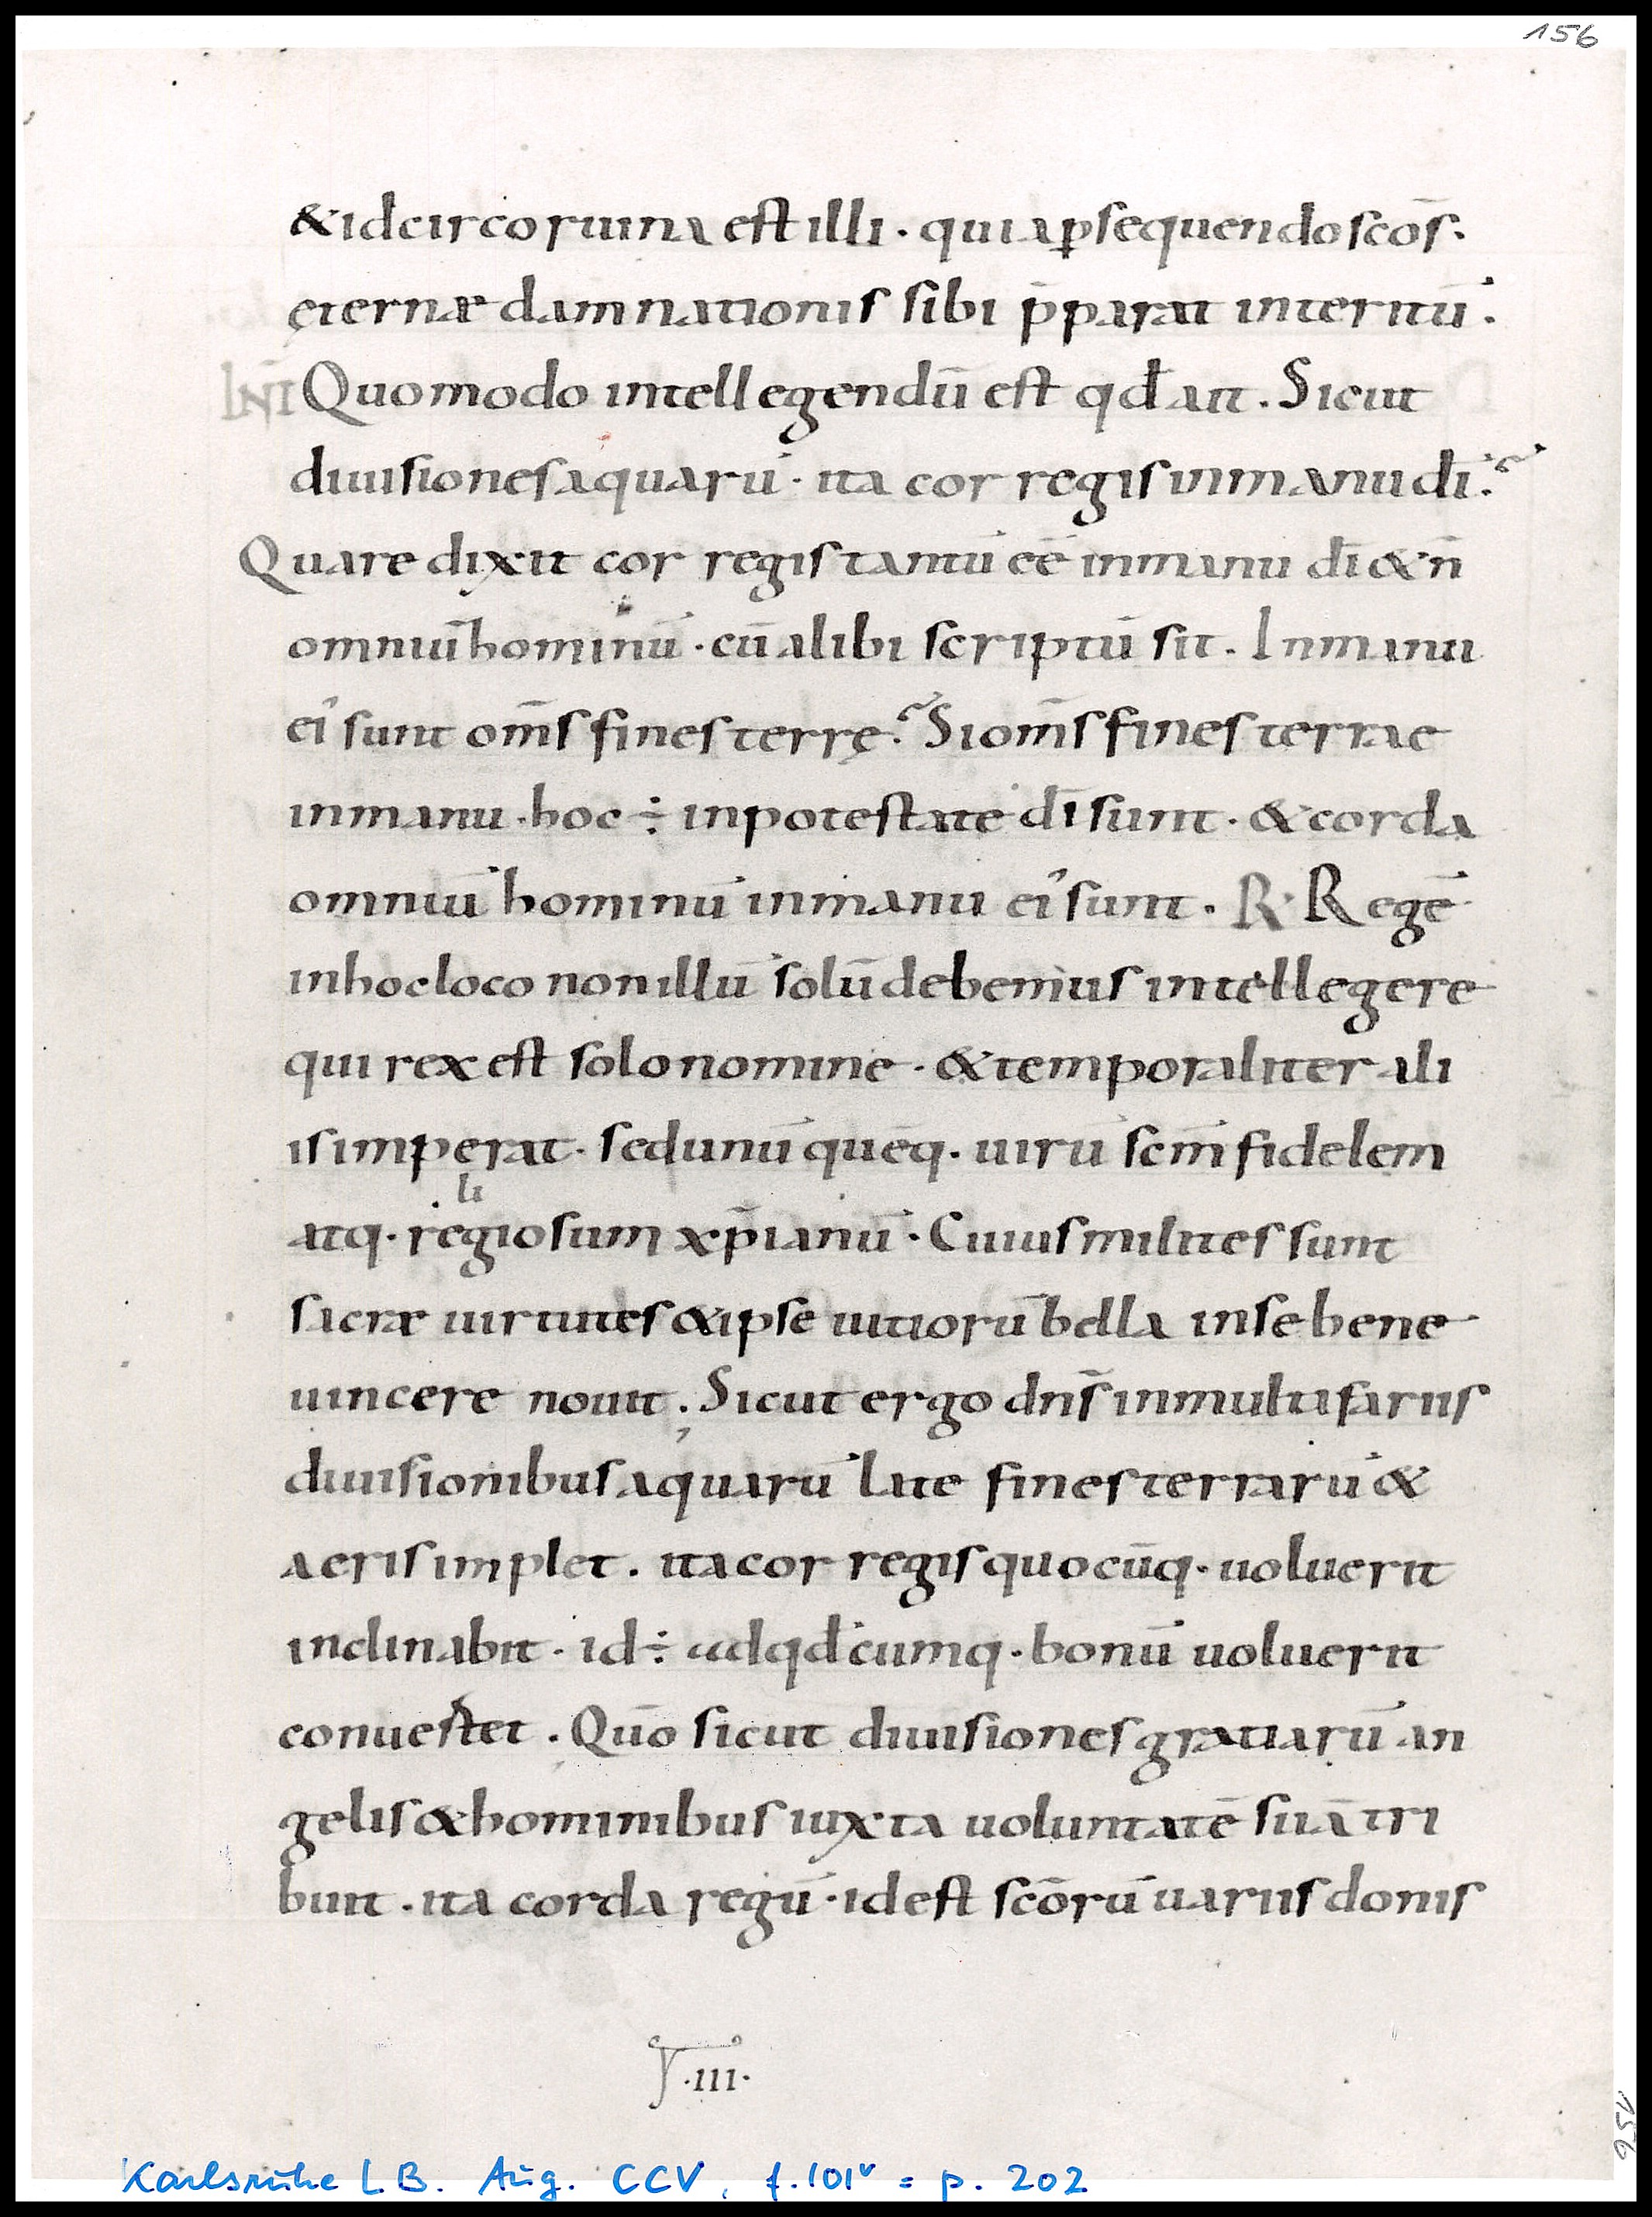 156
& idcirco ruina est illi · quia p̲sequendo scōs ·
ęternæ damnationis sibi p̄parat interitū ·
INT̄ Quomodo intellegendū est qđ ait . Sicut
diuisiones aquarū · ita cor regis in manu dī ?
Quare dixit cor regis tantū eē in manu dī & ñ
omniū hominū · cū alibi scriptū sit . In manu
ei' sunt om̄s fines terrę ? Si om̄s fines terrae
in manu · hoc ÷ in potestate dī sunt · & corda
omniū hominū in manu ei' sunt . R· Regē
in hoc loco non illū solū debemus intellegere
qui rex est solo nomine · & temporaliter ali
is imperat · sed unū quēq· uirū scm̄ fidelem
li
atq· regiosum xp̄ianū · Cuius milites sunt
sacræ uirtutes & ipse uitiorū bella in se bene
uincere nouit ; Sicut ergo dns̄ in multifariis
diuisionibus aquarū late fines terrarū &
aeris implet . ita cor regis quocūq· uoluerit
inclinabit · id ÷ ad qđcumq· bonū uoluerit
conuertet . Quō sicut diuisiones gratiarū an
gelis & hominibus iuxta uoluntatē suā tri
buit . ita corda regū · id est scōrū uariis donis
·III·
Karlsruhe L.B. Aug. CCV, f. 101ᵛ = p. 202